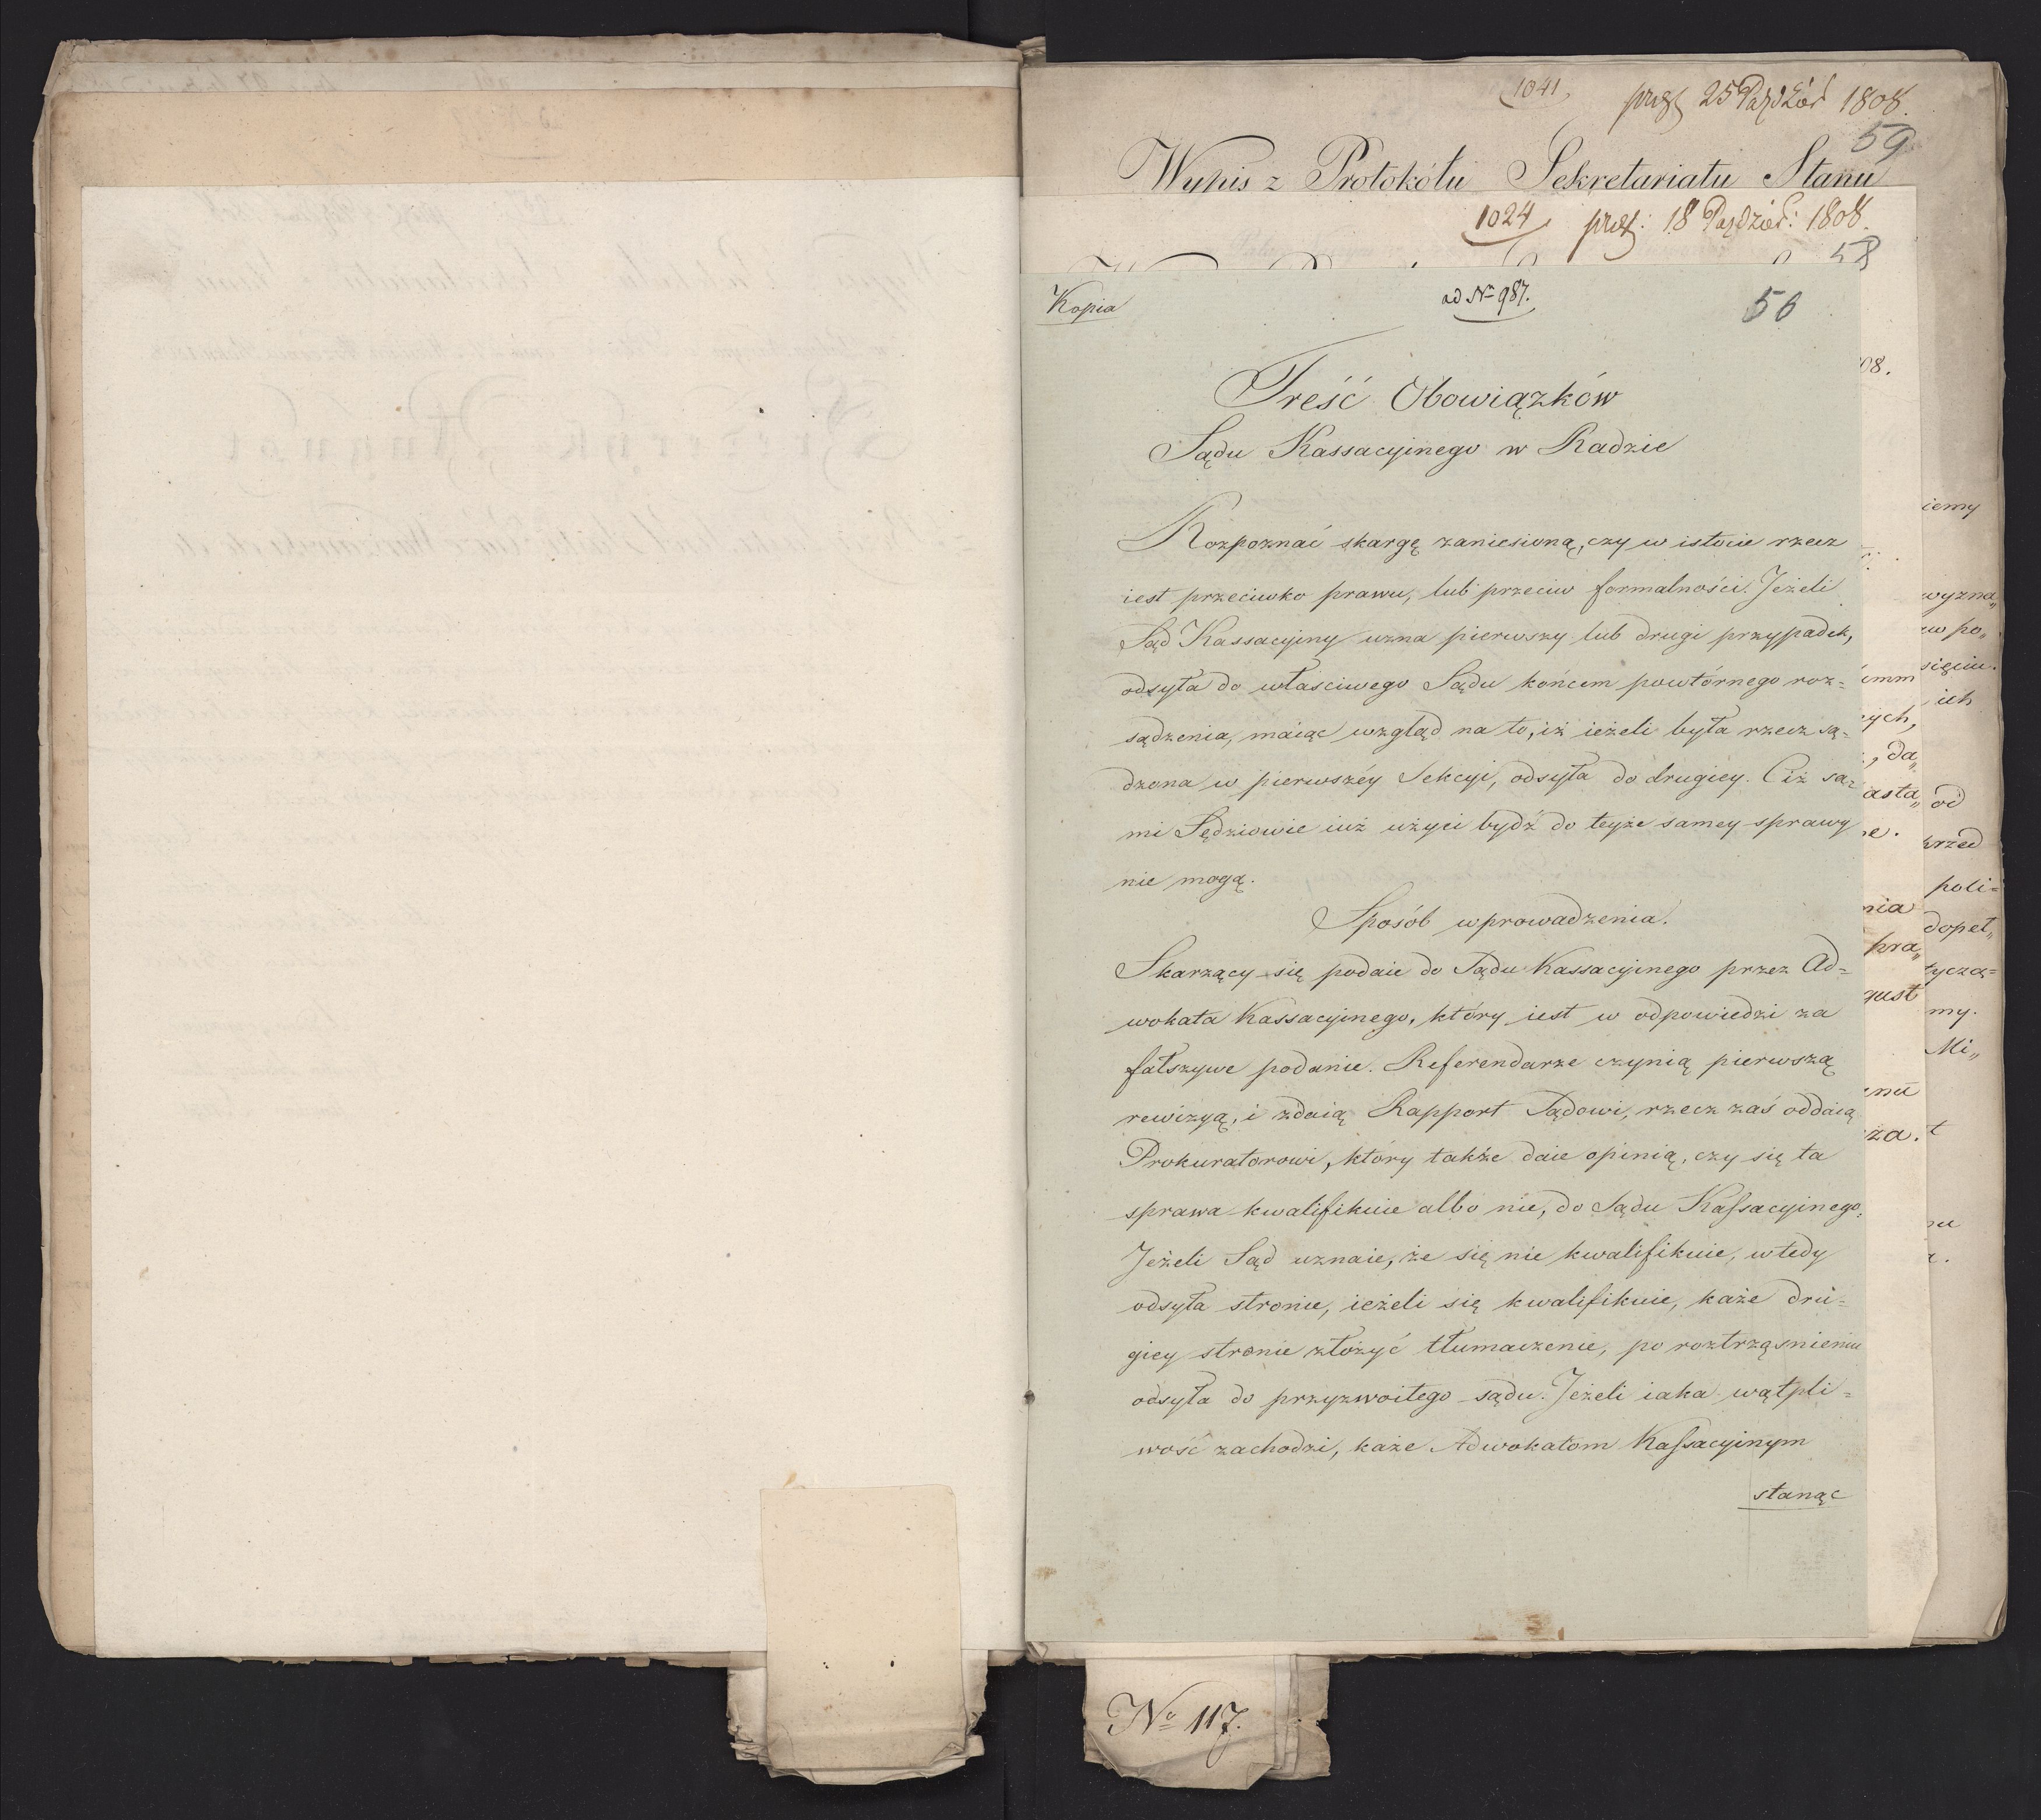 1041 25 Paździór 1808.
59
Wypis z Protokółu Sekretariatu Stanu
1024 18 Paździer: 1808.
58
Kopia
ad Nro 987.
56
Treść Obowiązków
Sądu Kassacyinego w Radzie
Rozpoznać skargę zaniesioną, czy w istocie rzecz
iest przeciwko prawu, lub przeciw formalności. Jeżeli
Sąd Kassacyiny uzna pierwszy lub drugi przypadek,
odsyła do własciwego Sądu końcem powtórnego roz=
sądzenia, maiąc wzgląd na to, iż ieżeli była rzecz są=
dzona w pierwszéy Sekcyi, odsyła do drugiey. Ciż sa=
mi Sędziowie iuż użyci bydź do teyże samey sprawy
nie mogą.
Sposób wprowadzenia.
Skarzący się podaie do Sądu Kassacyinego przez Ad=
wokata Kassacyinego, który iest w odpowiedzi za
fałszywe podanie. Referendarze czynią pierwszą
rewizyą, i zdaią Rapport Sądowi, rzecz zaś oddaią
Prokuratorowi, który także daie opinią, czy się ta
sprawa kwalifikuie albo nie, do Sądu Kassacyinego.
Jeżeli Sąd uznaie, że się nie kwalifikuie, wtedy
odsyła stronie, ieżeli się kwalifikuie, każe dru=
giey stronie złożyć tłumaczenie, po roztrząśnieniu
odsyła do przyzwoitego sądu. Jeżeli iaka wątpli=
wość zachodzi, każe Adwokatom Kassacyinym
stanąc
08.
iemy
wyzna„
po„
sięciu.
ich
ych,
da„
asta„
od
przed
poli=
nia
dopeł„
pra„
tyczą=
gust
my.
Mi„
nu
za.
No 117.